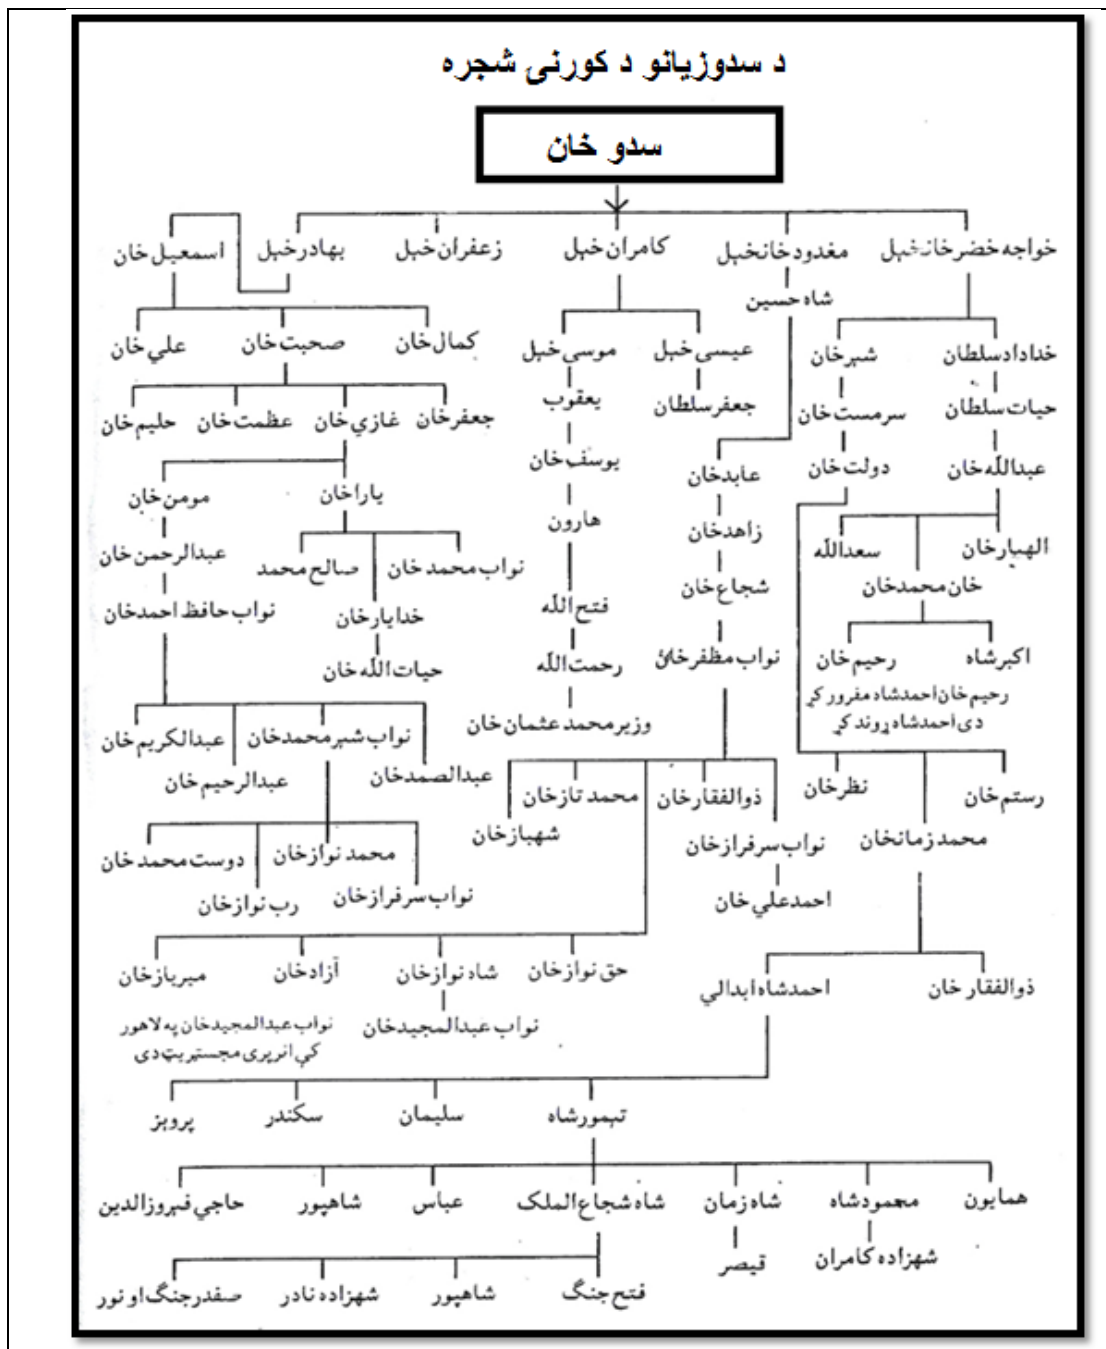 د سدوزيانو د کورنۍ شجره
سدو خان
خواجه خضر خانخېل
مغدود خانخېل
کامران خېل
زعفران خېل
بهادر خېل
اسمعيل خان
شاه حسين
خداداد سلطان
شېر خان
عيسی خېل
موسی خېل
کمال خان
صحبت خان
علي خان
حيات سلطان
سرمست خان
جعفر سلطان
يعقوب
جعفر خان
غازي خان
عظمت خان
حليم خان
عبدالله خان
دولت خان
عابد خان
يوسف خان
يارا خان
مومن خان
الهيار خان
سعدالله
زاهد خان
هارون
نواب محمد خان
صالح محمد
عبدالرحمن خان
خان محمد خان
شجاع خان
فتح الله
خدايار خان
نواب حافظ احمد خان
اکبر شاه
رحيم خان
نواب مظفر خان
رحمت الله
حيات الله خان
رحيم خان احمد شاه مفرور کړ
دی احمد شاه ړوند کړ
وزير محمد عثمان خان
نواب شېر محمد خان
عبدالکريم خان
عبدالصمد خان
عبدالرحيم خان
رستم خان
نظر خان
ذوالفقار خان
محمد تاز خان
شهباز خان
محمد زمانخان
نواب سرفراز خان
محمد نواز خان
دوست محمد خان
احمد علي خان
نواب سرفراز خان
رب نواز خان
حق نواز خان
شاه نواز خان
آزاد خان
ميرباز خان
ذوالفقار خان
احمد شاه ابدالي
نواب عبدالمجيد خان
نواب عبدالمجيد خان په لاهور
کې انريری مجستريټ دی
تېمور شاه
سليمان
سکندر
پرويز
همايون
محمود شاه
شاه زمان
شاه شجاع الملک
عباس
شاهپور
حاجي فېروزالدين
شهزاده کامران
قيصر
فتح جنگ
شاهپور
شهزاده نادر
صفدر جنگ او نور